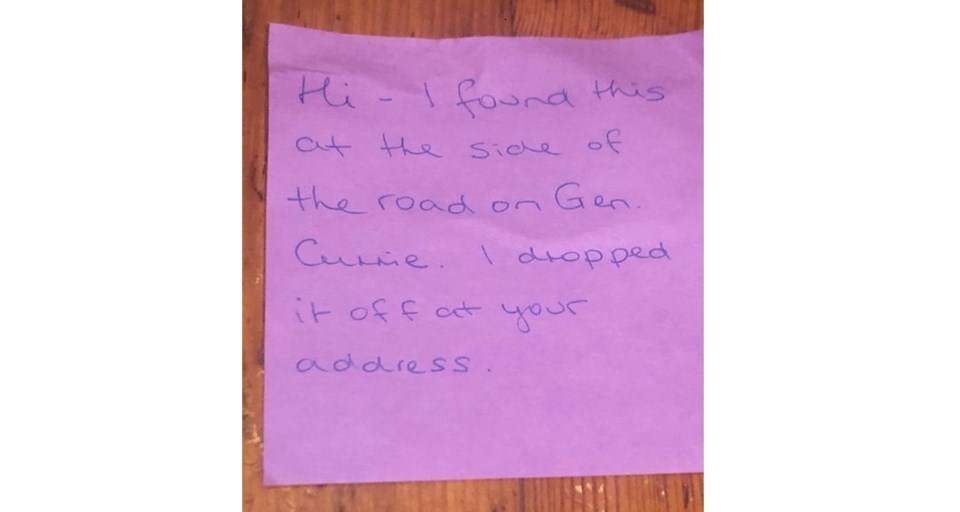 Hi - I found this
at the side of
the road on Gen.
Currie. I dropped
it off at your
address.